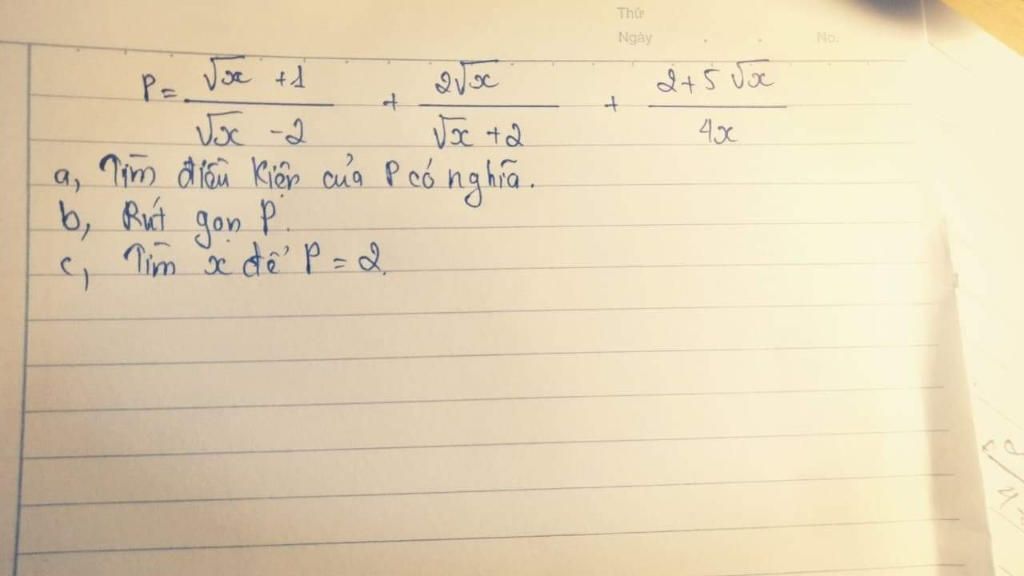 Thứ
Ngày . . No.
P = \frac{\sqrt{x} + 1}{\sqrt{x} - 2} + \frac{2\sqrt{x}}{\sqrt{x} + 2} + \frac{2 + 5\sqrt{x}}{4x}
a, Tìm điều kiện của P có nghĩa.
b, Rút gọn P.
c, Tìm x để P = 2.